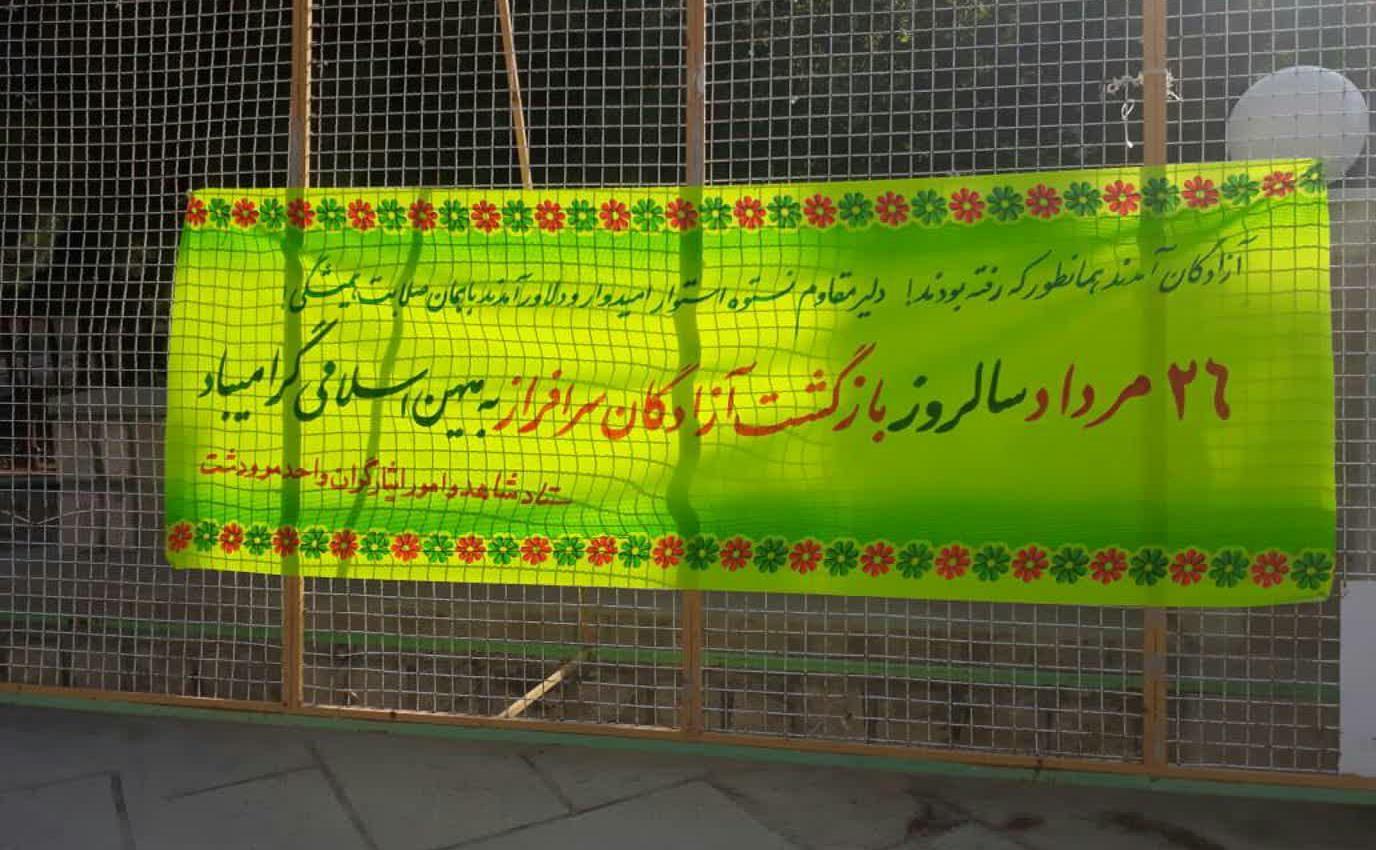 آزادگان آمدند همانطور که رفته بودند! دلیر مقاوم نستوه استوار امیدوار و دلاور آمدند با همان صلابت همیشگی!
۲۶ مرداد سالروز بازگشت آزادگان سرافراز به میهن اسلامی گرامیباد
ستاد شاهد و امور ایثارگران واحد مرودشت